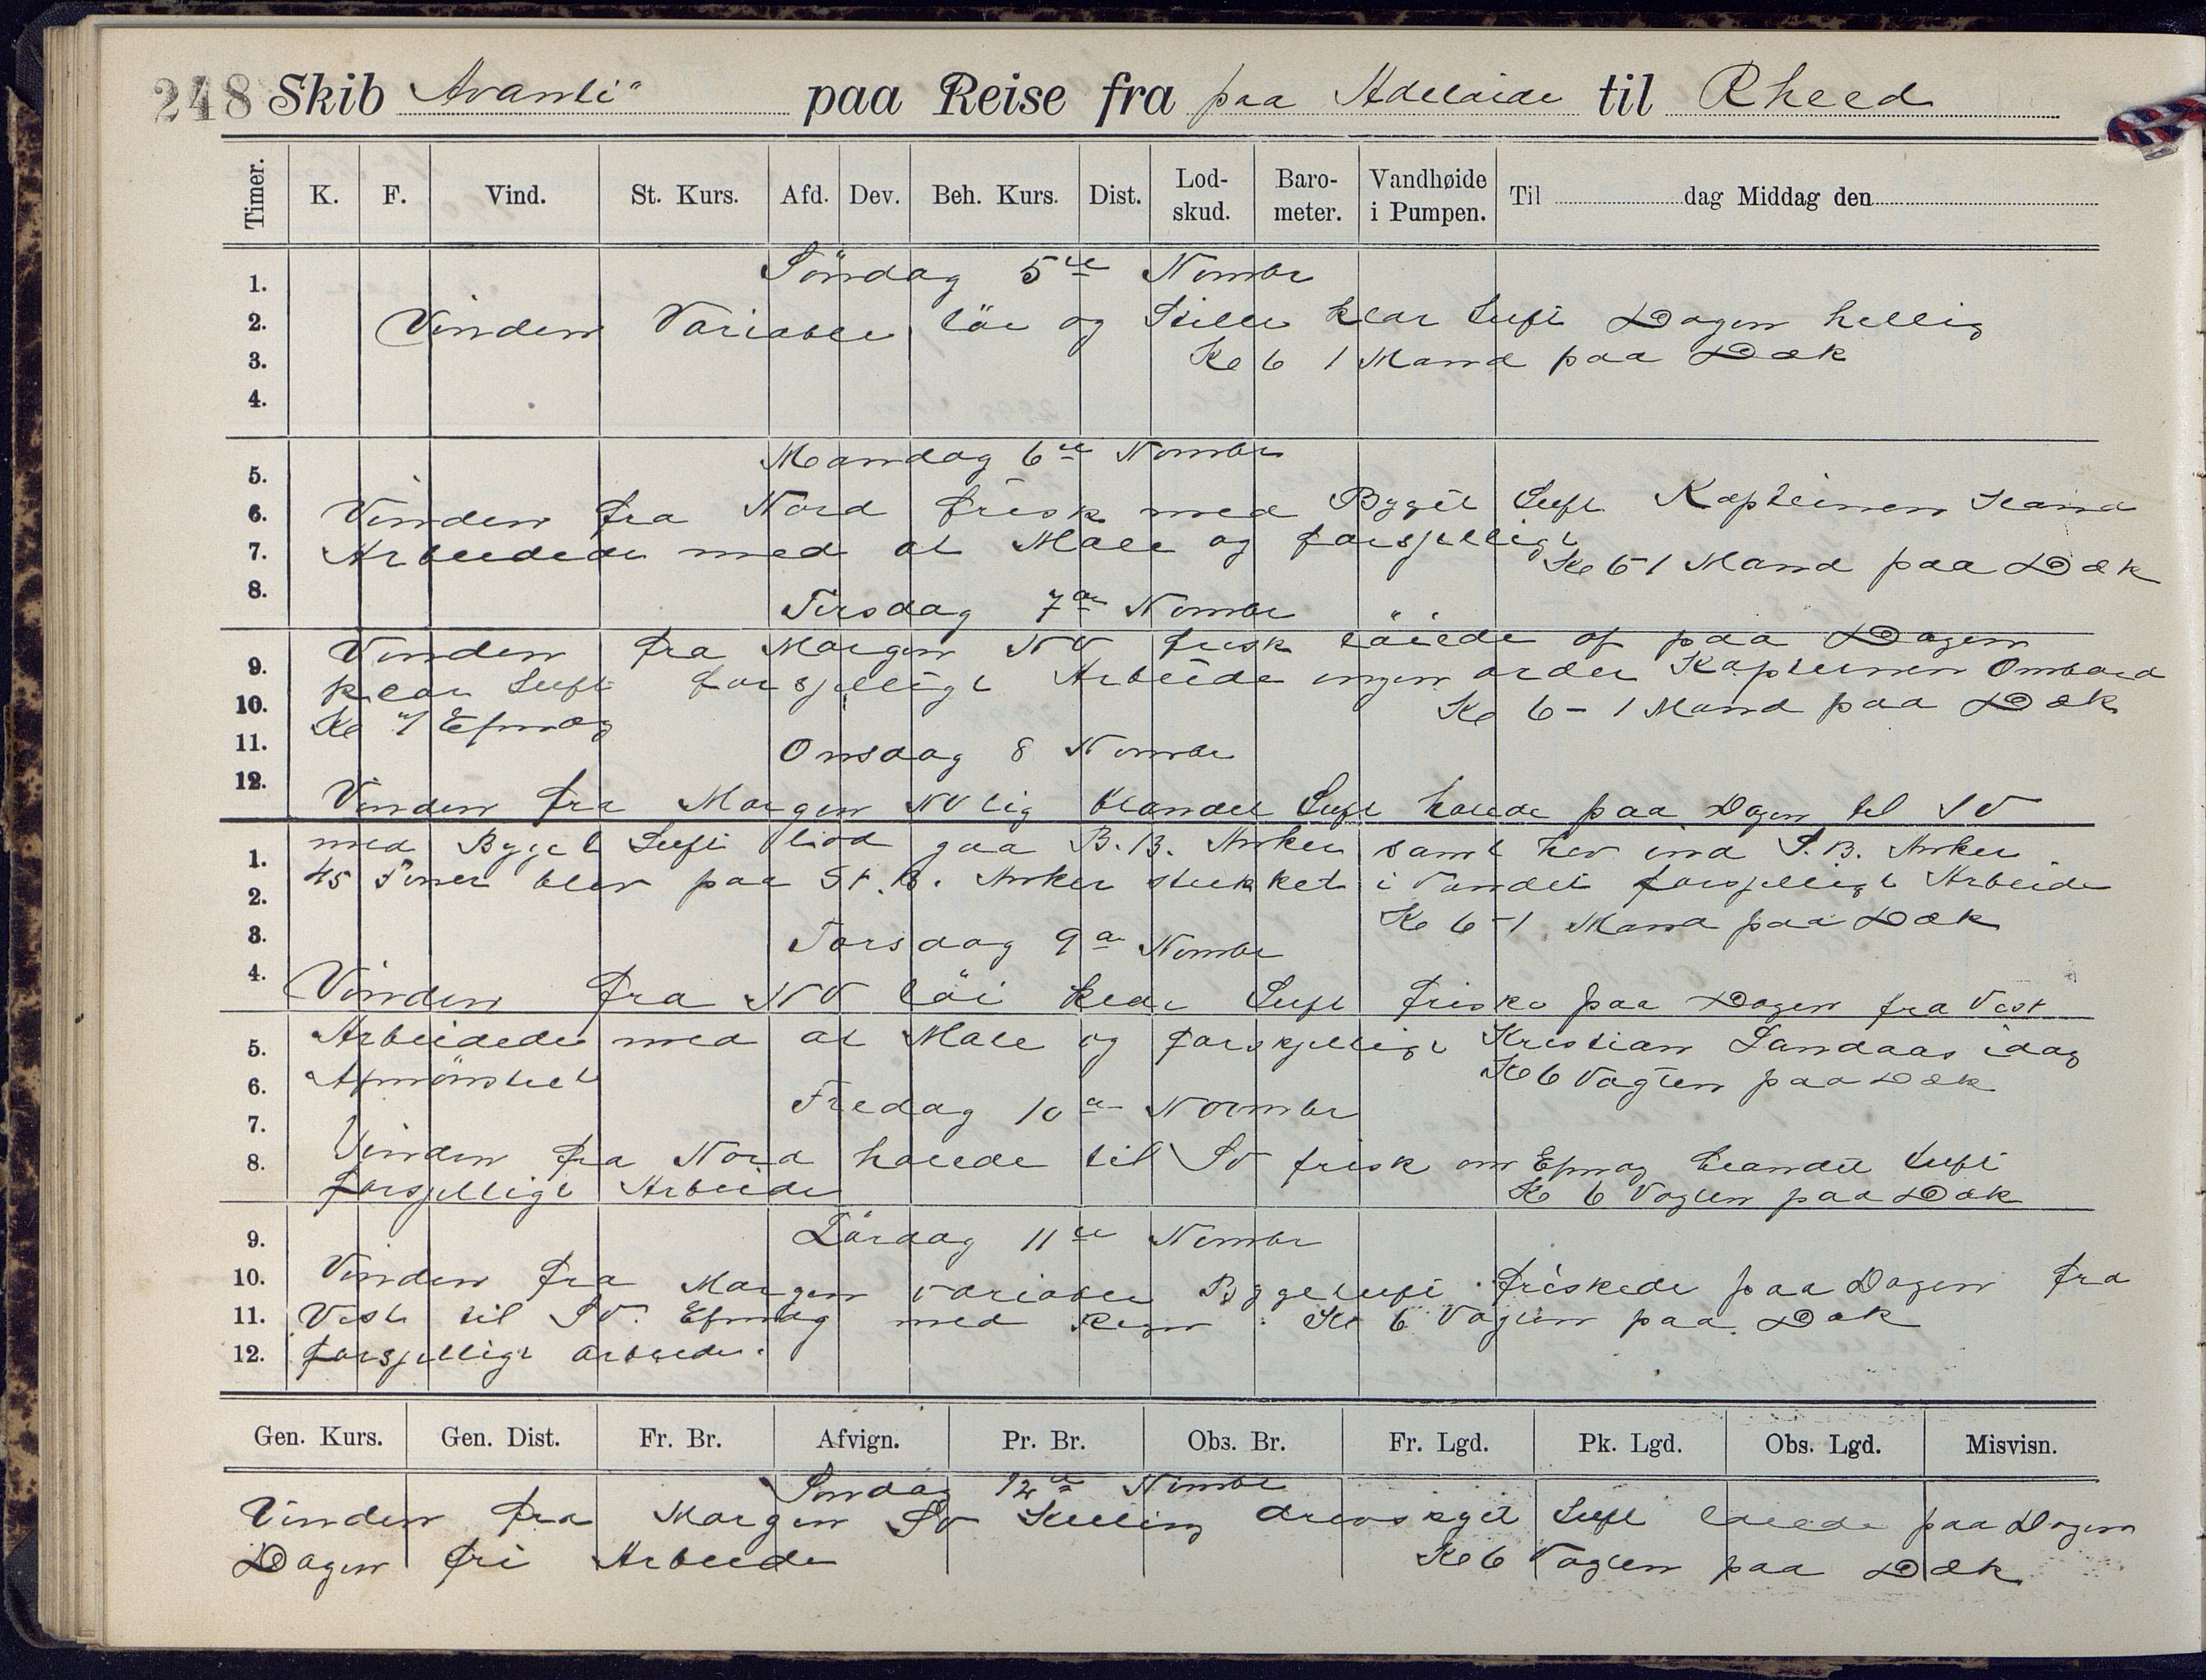 248 Skib Avanti" paa Reise fra paa Adelaide til Rheed
Timer. K. F. Vind. St. Kurs. Afd. Dev. Beh. Kurs. Dist. Lod-skud. Baro-meter. Vandhøide i Pumpen. Til dag Middag den
1. Söndag 5te Nombr
2. Vinden Variable löi og Stille klar Luft Dagen hellig
3. Kl 6 1 Mand paa Dæk
4.
5. Mandag 6te Nombr
6. Vinden fra Nord frisk med Byget Luft Kapteinen Iland
7. Arbeidede med at Male og forsjelligt
Kl 6 - 1 Mand paa Dæk
8. Tirsdag 7de Nombr
Vinden fra Morgen NV frisk löiede af paa Dagen
9. klar Luft forsjelligt Arbeide ingen order Kapteinen Ombord
10. Kl 7 Efmdg Kl 6 - 1 Mand paa Dæk
11. Onsdag 8 Nombr
12. Vinden fra Morgen NVlig blandet Luft halede paa Dagen til SV
1. med Byget Luft lod gaa B.B. Anker samt hev ind S.B. Anker
2. 45 Favner blev paa St.B. Anker stukket i Vandet forsjelligt Arbeide
Kl 6 - 1 Mand paa Dæk
3. Torsdag 9de Nombr
4. Vinden fra NV löi Luft friske paa Dagen fra Vest
5. Arbeidede med at Male og forskjelligt Kristian Landaas idag
6. Afmönstret Kl 6 Vagten paa Dæk
Fredag 10de Novmbr
7.
8. Vinden fra Nord halede til SV frisk om Efmdg blandet Luft
forsjelligt Arbeide Kl 6 Vagten paa Dæk
9. Lördag 11te Nombr
10. Vinden fra Morgen variable Bygeluft friskede paa Dagen fra
11. Vest til SV. Efmdg med Regn. Kl 6 Vagten paa Dæk
12. forsjelligt arbeide.
Gen. Kurs. Gen. Dist. Fr. Br. Afvign. Pr. Br. Obs. Br. Fr. Lgd. Pk. Lgd. Obs. Lgd. Misvisn.
Søndag 12te Nombr
Vinden fra Morgen SV Kuling Luft löiede paa Dagen
Dagen fri Arbeide Kl 6 Vagten paa Dæk